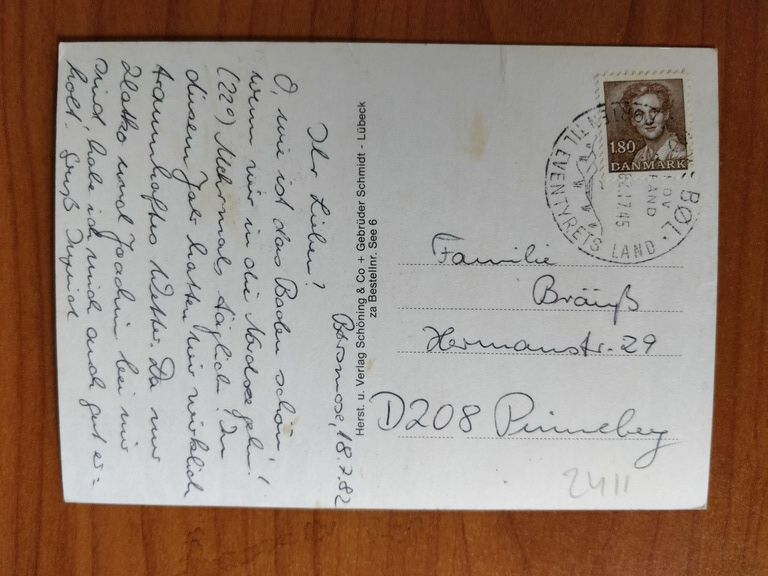 Børsmose, 18.7.82
Ihr Lieben!
O, wie ist das Baden schön,
wenn wir in die Nordsee gehn!
(22°) Mehrmals täglich! In
diesem Jahr hatten wir wirklich
traumhaftes Wetter. Da nur
Zlatko und Joachim bei mir
sind, habe ich mich auch gut er=
holt. Gruß Ingrid
Herst. u. Verlag Schöning & Co + Gebrüder Schmidt - Lübeck
za Bestellnr. See 6
1.80
DANMARK
BØL
TIL EVENTYRETS LAND
82.17.45
Familie
Bräuß
Hermanstr. 29
D208 Pinneberg
2411